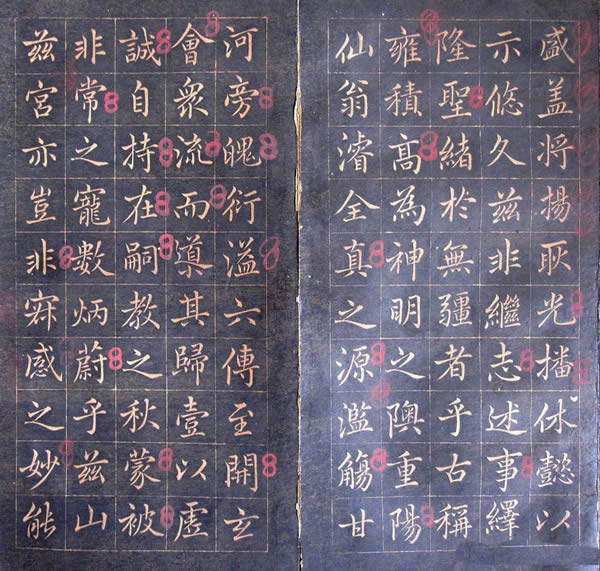 盛盖将揚耿光播休懿以
示悠久兹非繼志述事繹
隆聖緒於無疆者乎古稱
雍積高為神明之隩重陽
仙翁濬全真之源濫觴甘
河旁魄衍溢六傳至開玄
會衆流而導其歸壹以虚
誠自持在嗣教之秋蒙被
非常之寵數炳蔚乎兹山
兹宮亦豈非寂感之妙能